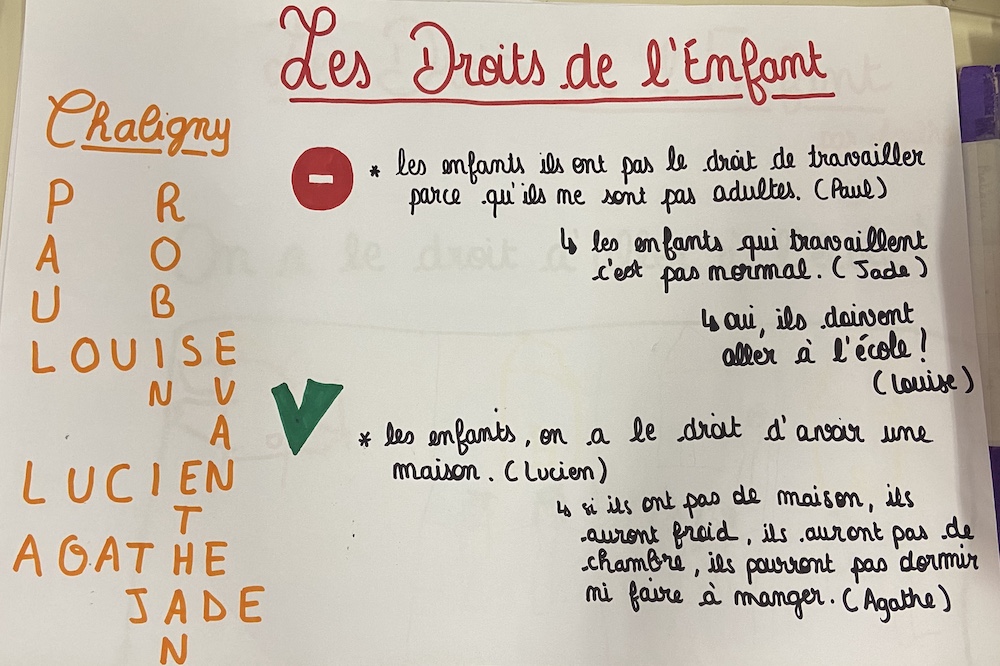 Les Droits de l'Enfant
Chaligny
P R
A O
U B
LOUISE
N V
A
LUCIEN
T
AGATHE
JADE
N
* les enfants ils ont pas le droit de travailler
parce qu'ils ne sont pas adultes. (Paul)
↳ les enfants qui travaillent
c'est pas normal. (Jade)
↳ oui, ils doivent
aller à l'école !
(Louise)
* les enfants, on a le droit d'avoir une
maison. (Lucien)
↳ si ils ont pas de maison, ils
auront froid, ils auront pas de
chambre, ils pourront pas dormir
ni faire à manger. (Agathe)